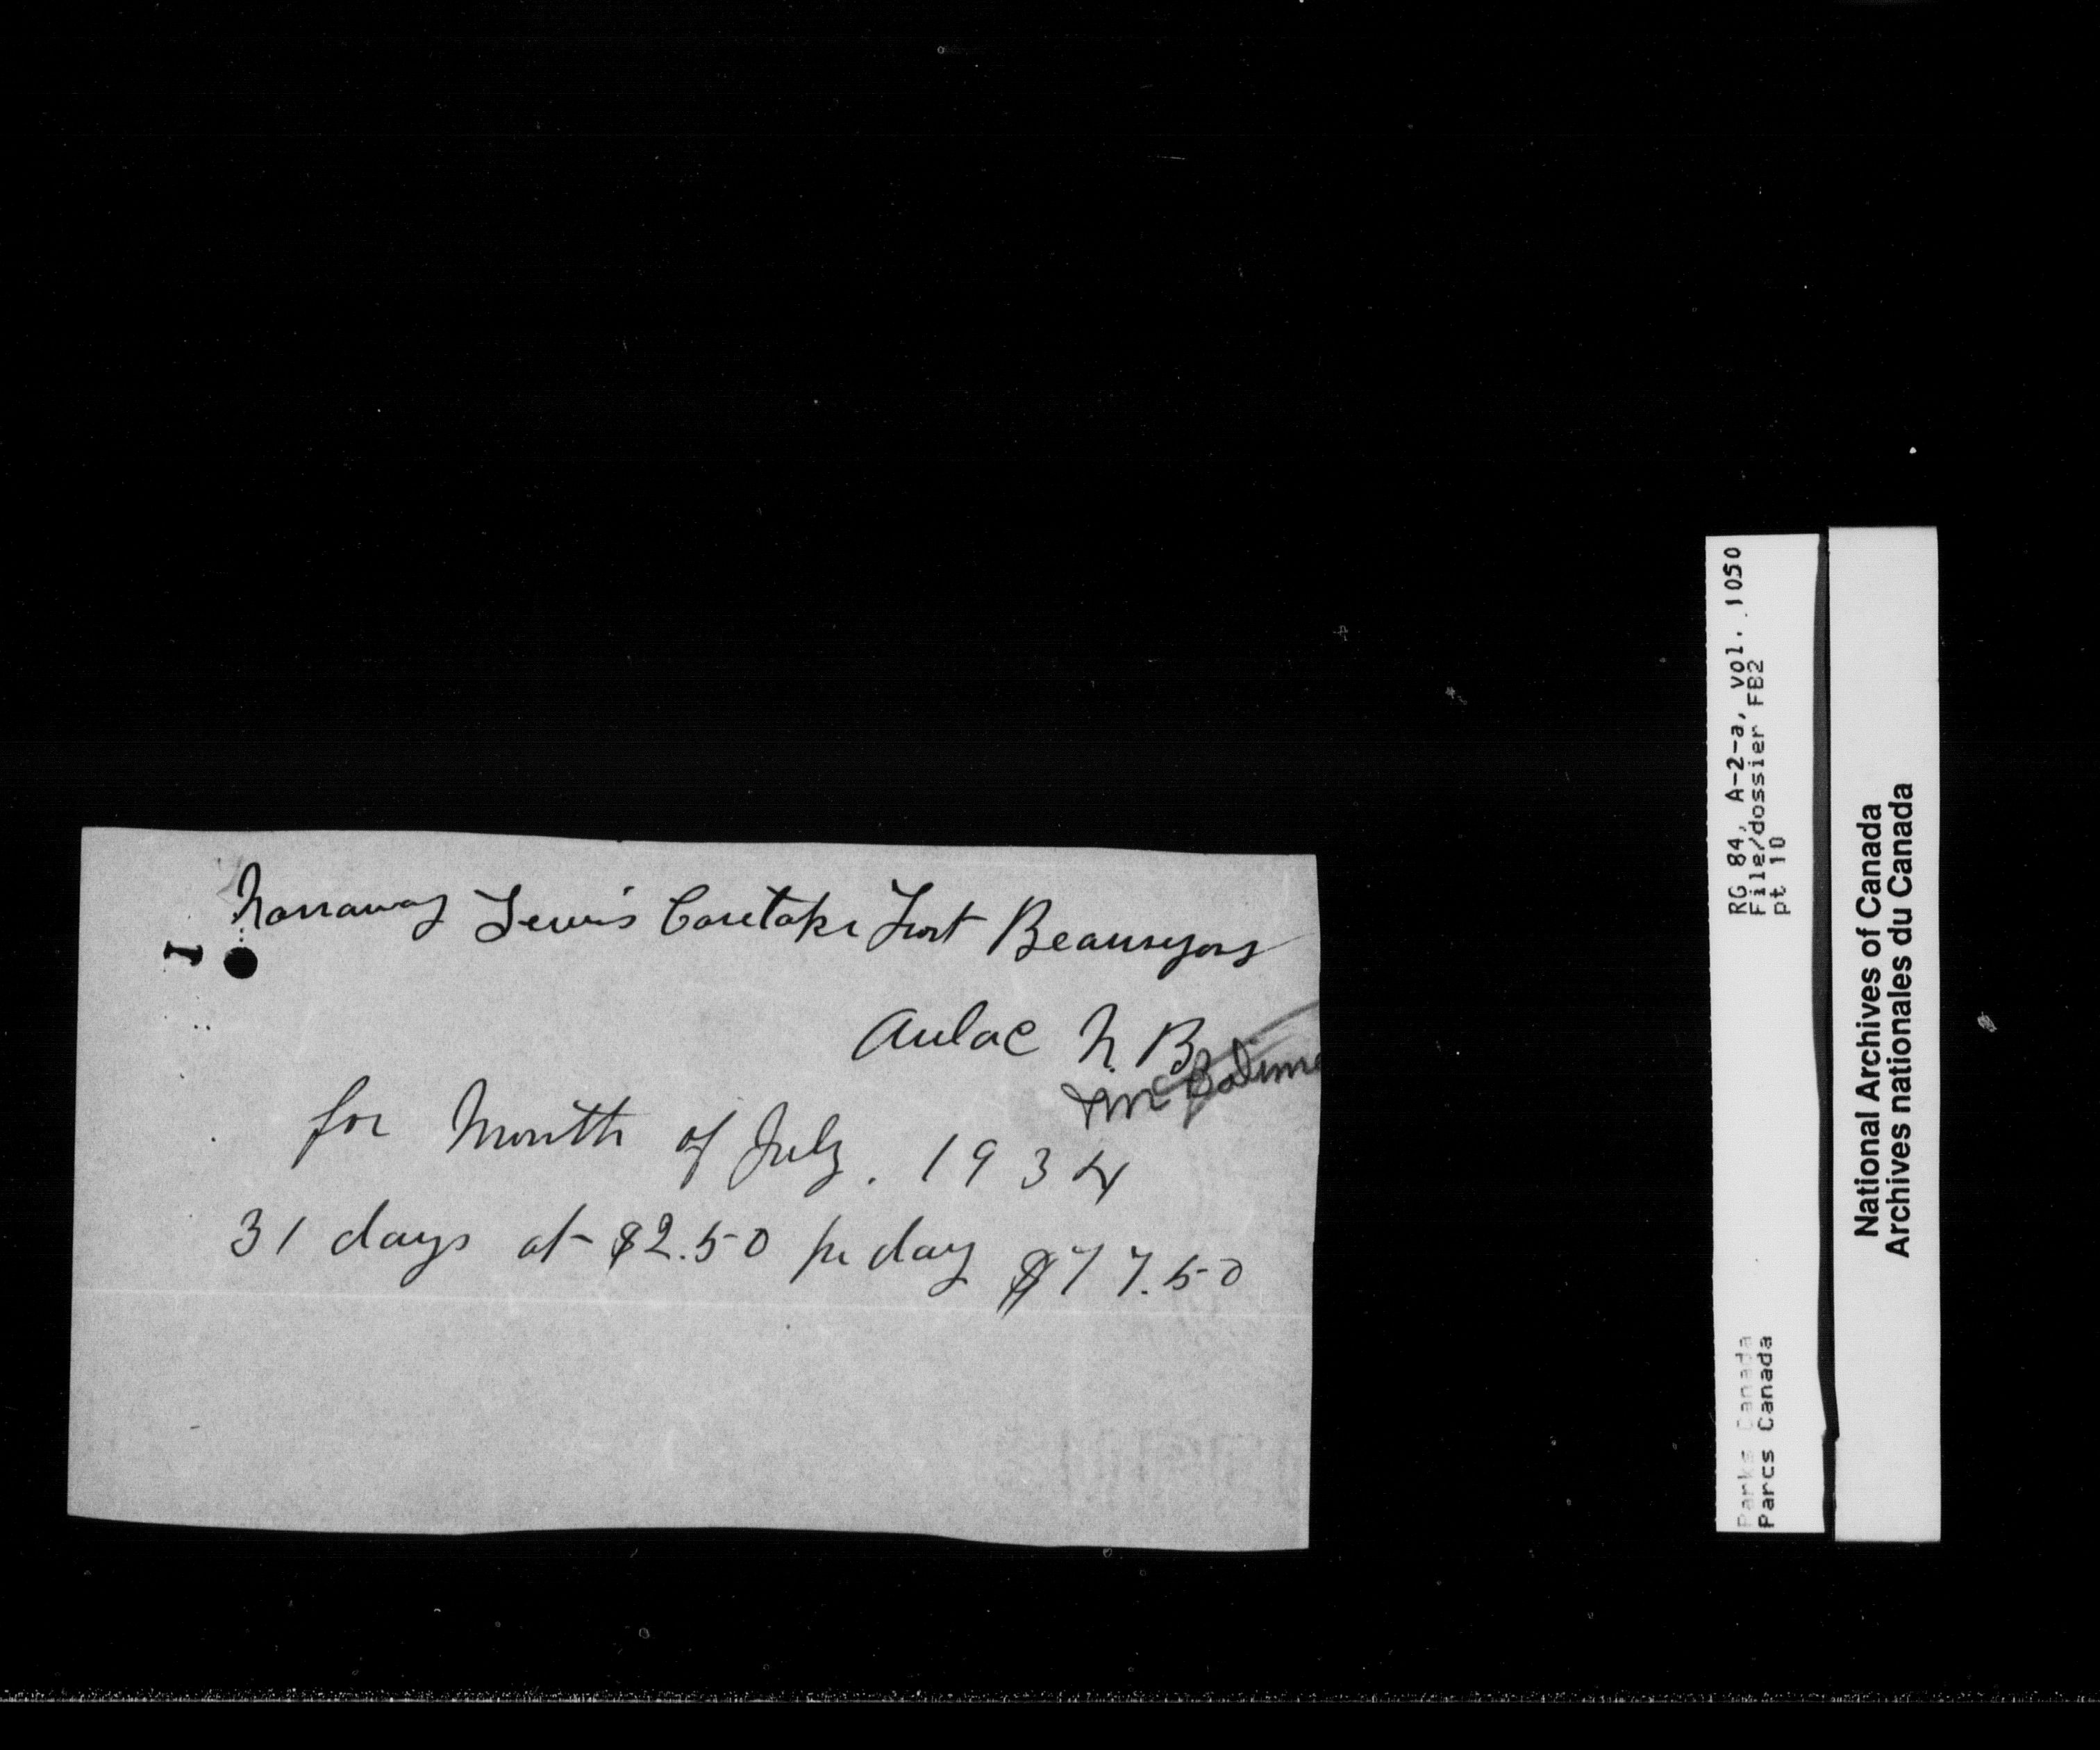 Narraway Lewis Caretaker Fort Beausejour
Aulac N. B
for Month of July. 1934
31 days at $2.50 per day $77.50
RG 84, A-2-a, vol. 1050
File/dossier FB2
pt 10
Parks Canada
Parcs Canada
National Archives of Canada
Archives nationales du Canada